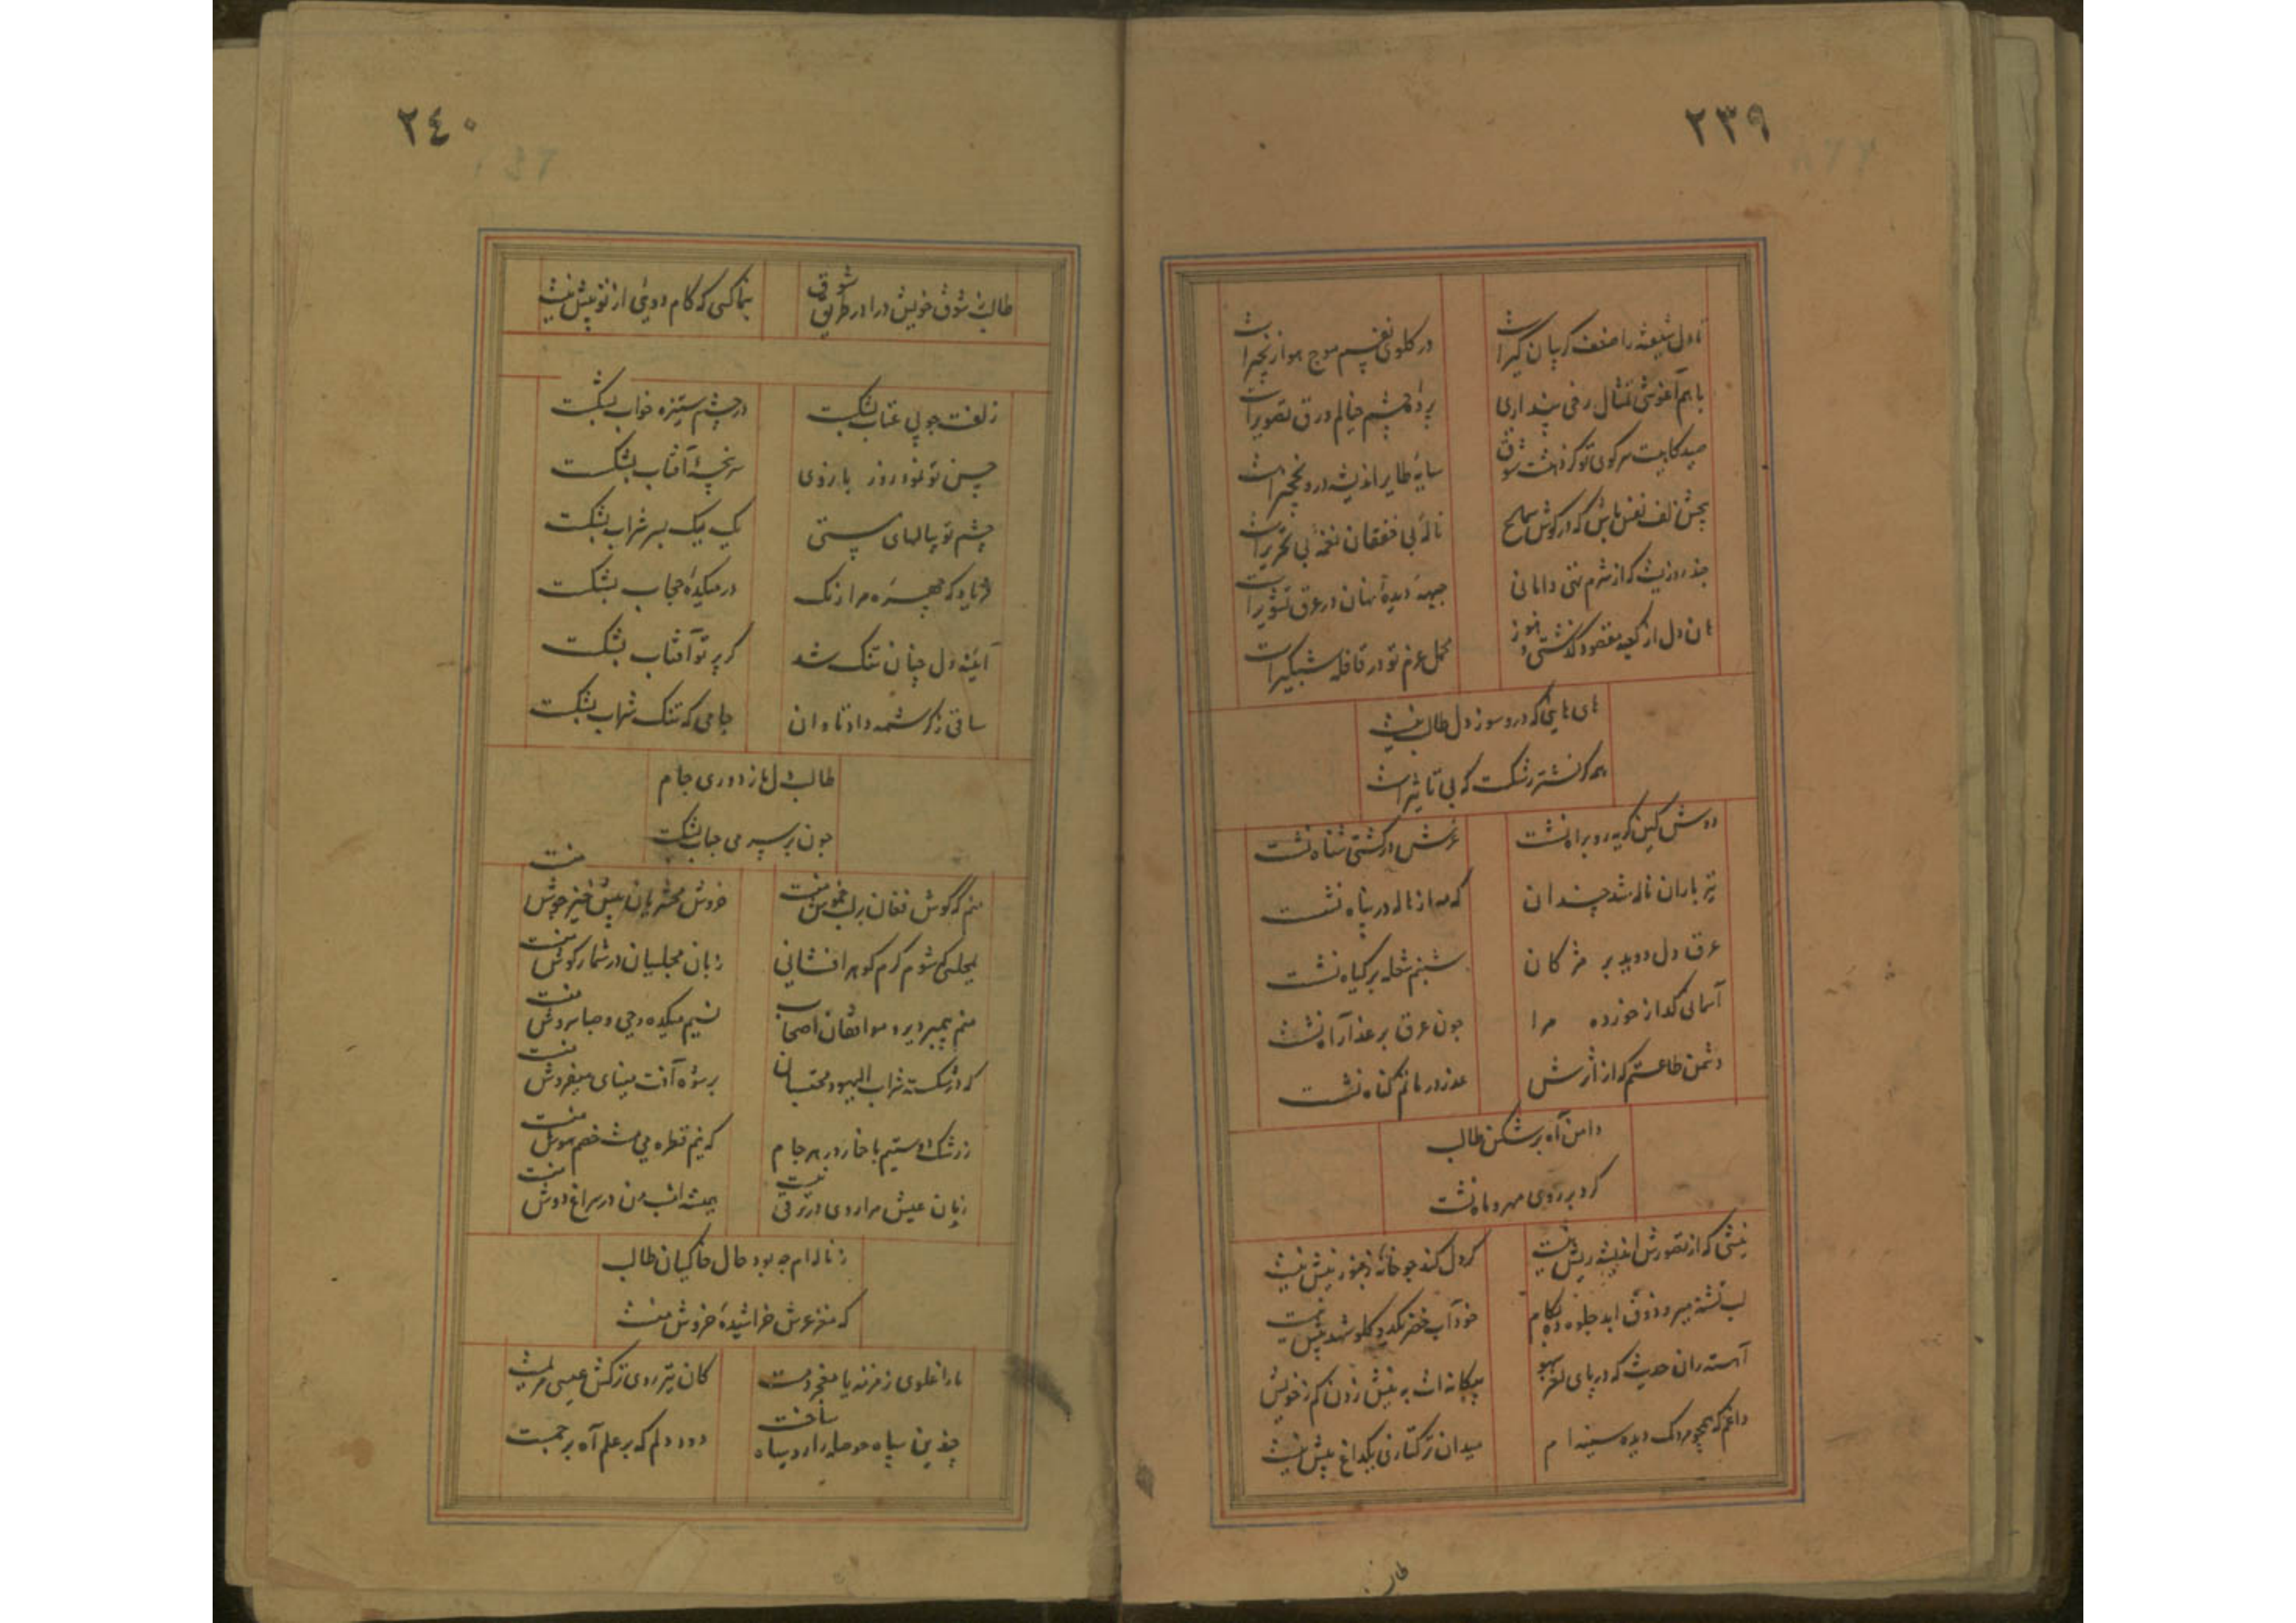 ٢٣٩
تا دل شیفته را ضعف گریبان گیر است
در گلوی نفسم موج هوا زنجیر است
با هم آغوشی تمثال رخی پنداری
پردهٔ چشم خیالم ورق تصویر است
صیدگاهیست سر کوی تو کز شوق
سایهٔ طایر اندیشه درو نخجیر است
نالهٔ بی خفقان نغمهٔ بی تحریر است
چند روزیست که از شرم دامانی
جبههٔ دیدهٔ در عرق تشویر است
هان دل از کعبه مقصود گذشتی و هنوز
محمل عزم تو در قافلهٔ شبگیر است
های هایی که درو سوز دل طالب نیست
همه گر نشتر رشکست که بی تاثیر است
دوش کین گریه رو براه نشست
عرش در کشتی شناه نشست
تیر باران ناله شد چندان
که مه از ناله در پناه نشست
عرق دل دوید بر مژکان
شبنم شعله بر کیاه نشست
آسمانی کداز خوزده مرا
چون عرق بر عذار آه نشست
دشمن طاعتم که از اثرش
عذر در ماتم کناه نشست
دامن آه بر شکن طالب
کرد بر روی مهر و ماه نشست
نیشی که از تصورش اندیشه ریش نیست
کر دل کند چو خانهٔ زنبور نیش نیست
لب تشنه میرو ذوق ابد جلوه ده بکام
خود آب خضر یکدو کلو شهد بیش نیست
آهسته ران حدیث که در پای لغز سهو
پیکانه است به نیش زدن کم ز خویش
داغم که همچو مردمک دیده سینه ام
میدان ترکتازی یکداغ بیش نیست
طالب
٢٤٠
طالب بشوق خویش درا در طریق شوق
بنما کسی که کام دویی از تو پیش نیست
زلفت چو پی عتاب بشکست
در چشم ستیزه خواب بشکست
حسن تو نمود روز بازوی
سر پنجهٔ آفتاب بشکست
چشم تو پیالهای مستی
یک یک بسر شراب بشکست
فریاد که چهره مرا رنک
در میکدهٔ حجاب بشکست
آیینه دل چنان تنک شد
کز پرتو آفتاب بشکست
ساقی ز کرشمه داد تاوان
جامی که تنک شراب بشکست
طالب دل ما ز دوری جام
چون بر سر می حباب بشکست
منم که کوش فغان بر لب خموش منست
خروش محشریان پیش خیز جوش منست
بمجلسی که شوم کرم کوهر افشانی
زبان مجلسیان در شمار کوش منست
منم پیمبر دیر و موافقان اصحاب
نسیم میکده وحی و صبا سروش منست
که در شکسته شراب الیهود محتسبان
بر سوه آفت مینای میفروش منست
ز رشک دوستیم با خمار در هر جام
که نیم قطره می هست خصم هوش منست
زیان عیش مرا روی در ترقی نیست
همیشه امشب من در سراغ دوش منست
ز ناله ام چه بود حال خاکیان طالب
که مغز عرش خراشیدهٔ خروش منست
ما را غلوی زمزمه با معجز دمست
کان تیر روی ترکش عیسی مریمست
چندین سپاه حوصله را رو سیاه ساخت
دود دلم که بر علم آه پرچمست